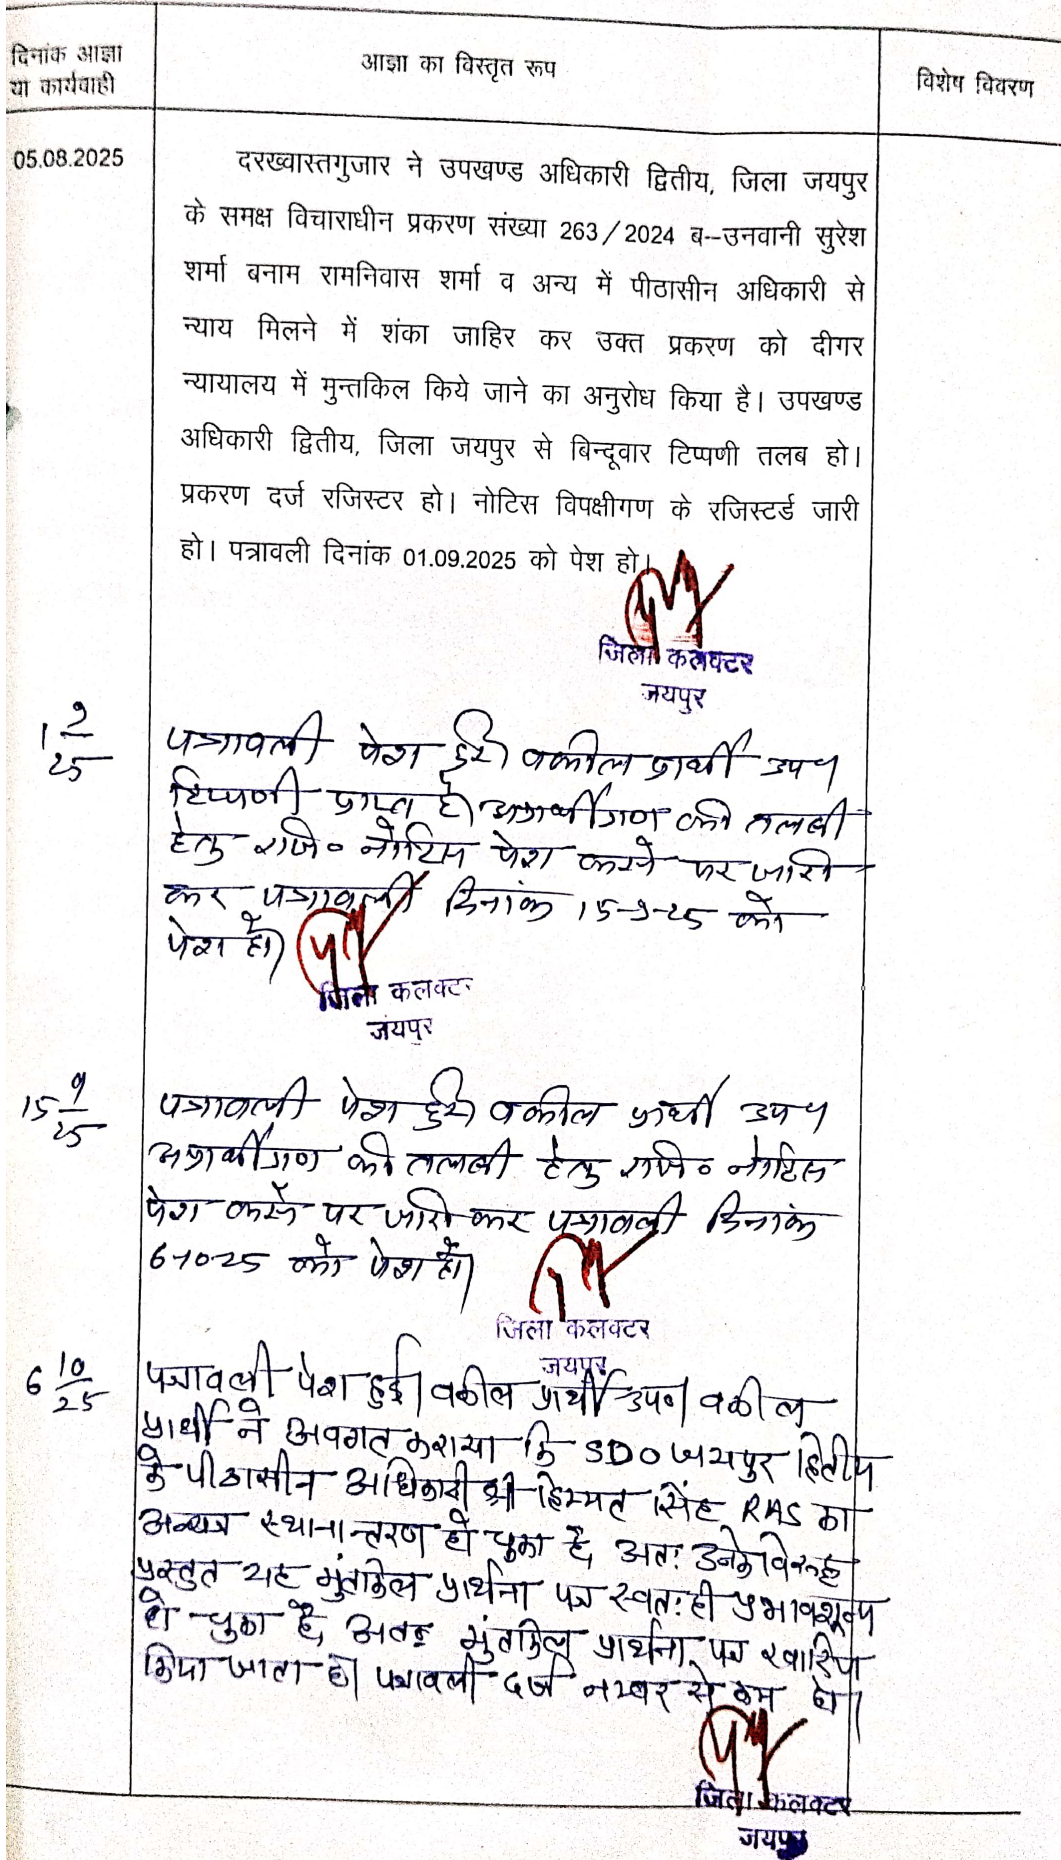 दिनांक आज्ञा
या कार्यवाही
आज्ञा का विस्तृत रूप
विशेष विवरण
05.08.2025
दरख्वास्तगुजार ने उपखण्ड अधिकारी द्वितीय, जिला जयपुर
के समक्ष विचाराधीन प्रकरण संख्या 263/2024 ब--उनवानी सुरेश
शर्मा बनाम रामनिवास शर्मा व अन्य में पीठासीन अधिकारी से
न्याय मिलने में शंका जाहिर कर उक्त प्रकरण को दीगर
न्यायालय में मुन्तकिल किये जाने का अनुरोध किया है। उपखण्ड
अधिकारी द्वितीय, जिला जयपुर से बिन्दूवार टिप्पणी तलब हो।
प्रकरण दर्ज रजिस्टर हो। नोटिस विपक्षीगण के रजिस्टर्ड जारी
हो। पत्रावली दिनांक 01.09.2025 को पेश हो।
जिला कलक्टर
जयपुर
1 9/25
पत्रावली पेश हुई। वकील प्रार्थी उप०
टिप्पणी प्राप्त है। अप्रार्थीगण की तलबी
हेतु रजि० नोटिस पेश करने पर जारी
कर पत्रावली दिनांक 15-9-25 को
पेश हो।
जिला कलक्टर
जयपुर
15 9/25
पत्रावली पेश हुई। वकील प्रार्थी उप०
अप्रार्थीगण की तलबी हेतु रजि० नोटिस
पेश करने पर जारी कर पत्रावली दिनांक
6-10-25 को पेश हो।
जिला कलक्टर
जयपुर
6 10/25
पत्रावली पेश हुई। वकील प्रार्थी उप०। वकील
प्रार्थी ने अवगत कराया कि SDO जयपुर द्वितीय
के पीठासीन अधिकारी श्री हिम्मत सिंह RAS का
अन्यत्र स्थानान्तरण हो चुका है, अतः उनके विरूद्ध
प्रस्तुत यह मुंतकिल प्रार्थना पत्र स्वतः ही प्रभावशून्य
हो चुका है, अतः मुंतकिल प्रार्थना पत्र खारिज
किया जाता है। पत्रावली दर्ज नम्बर से कम हो।
जिला कलक्टर
जयपुर